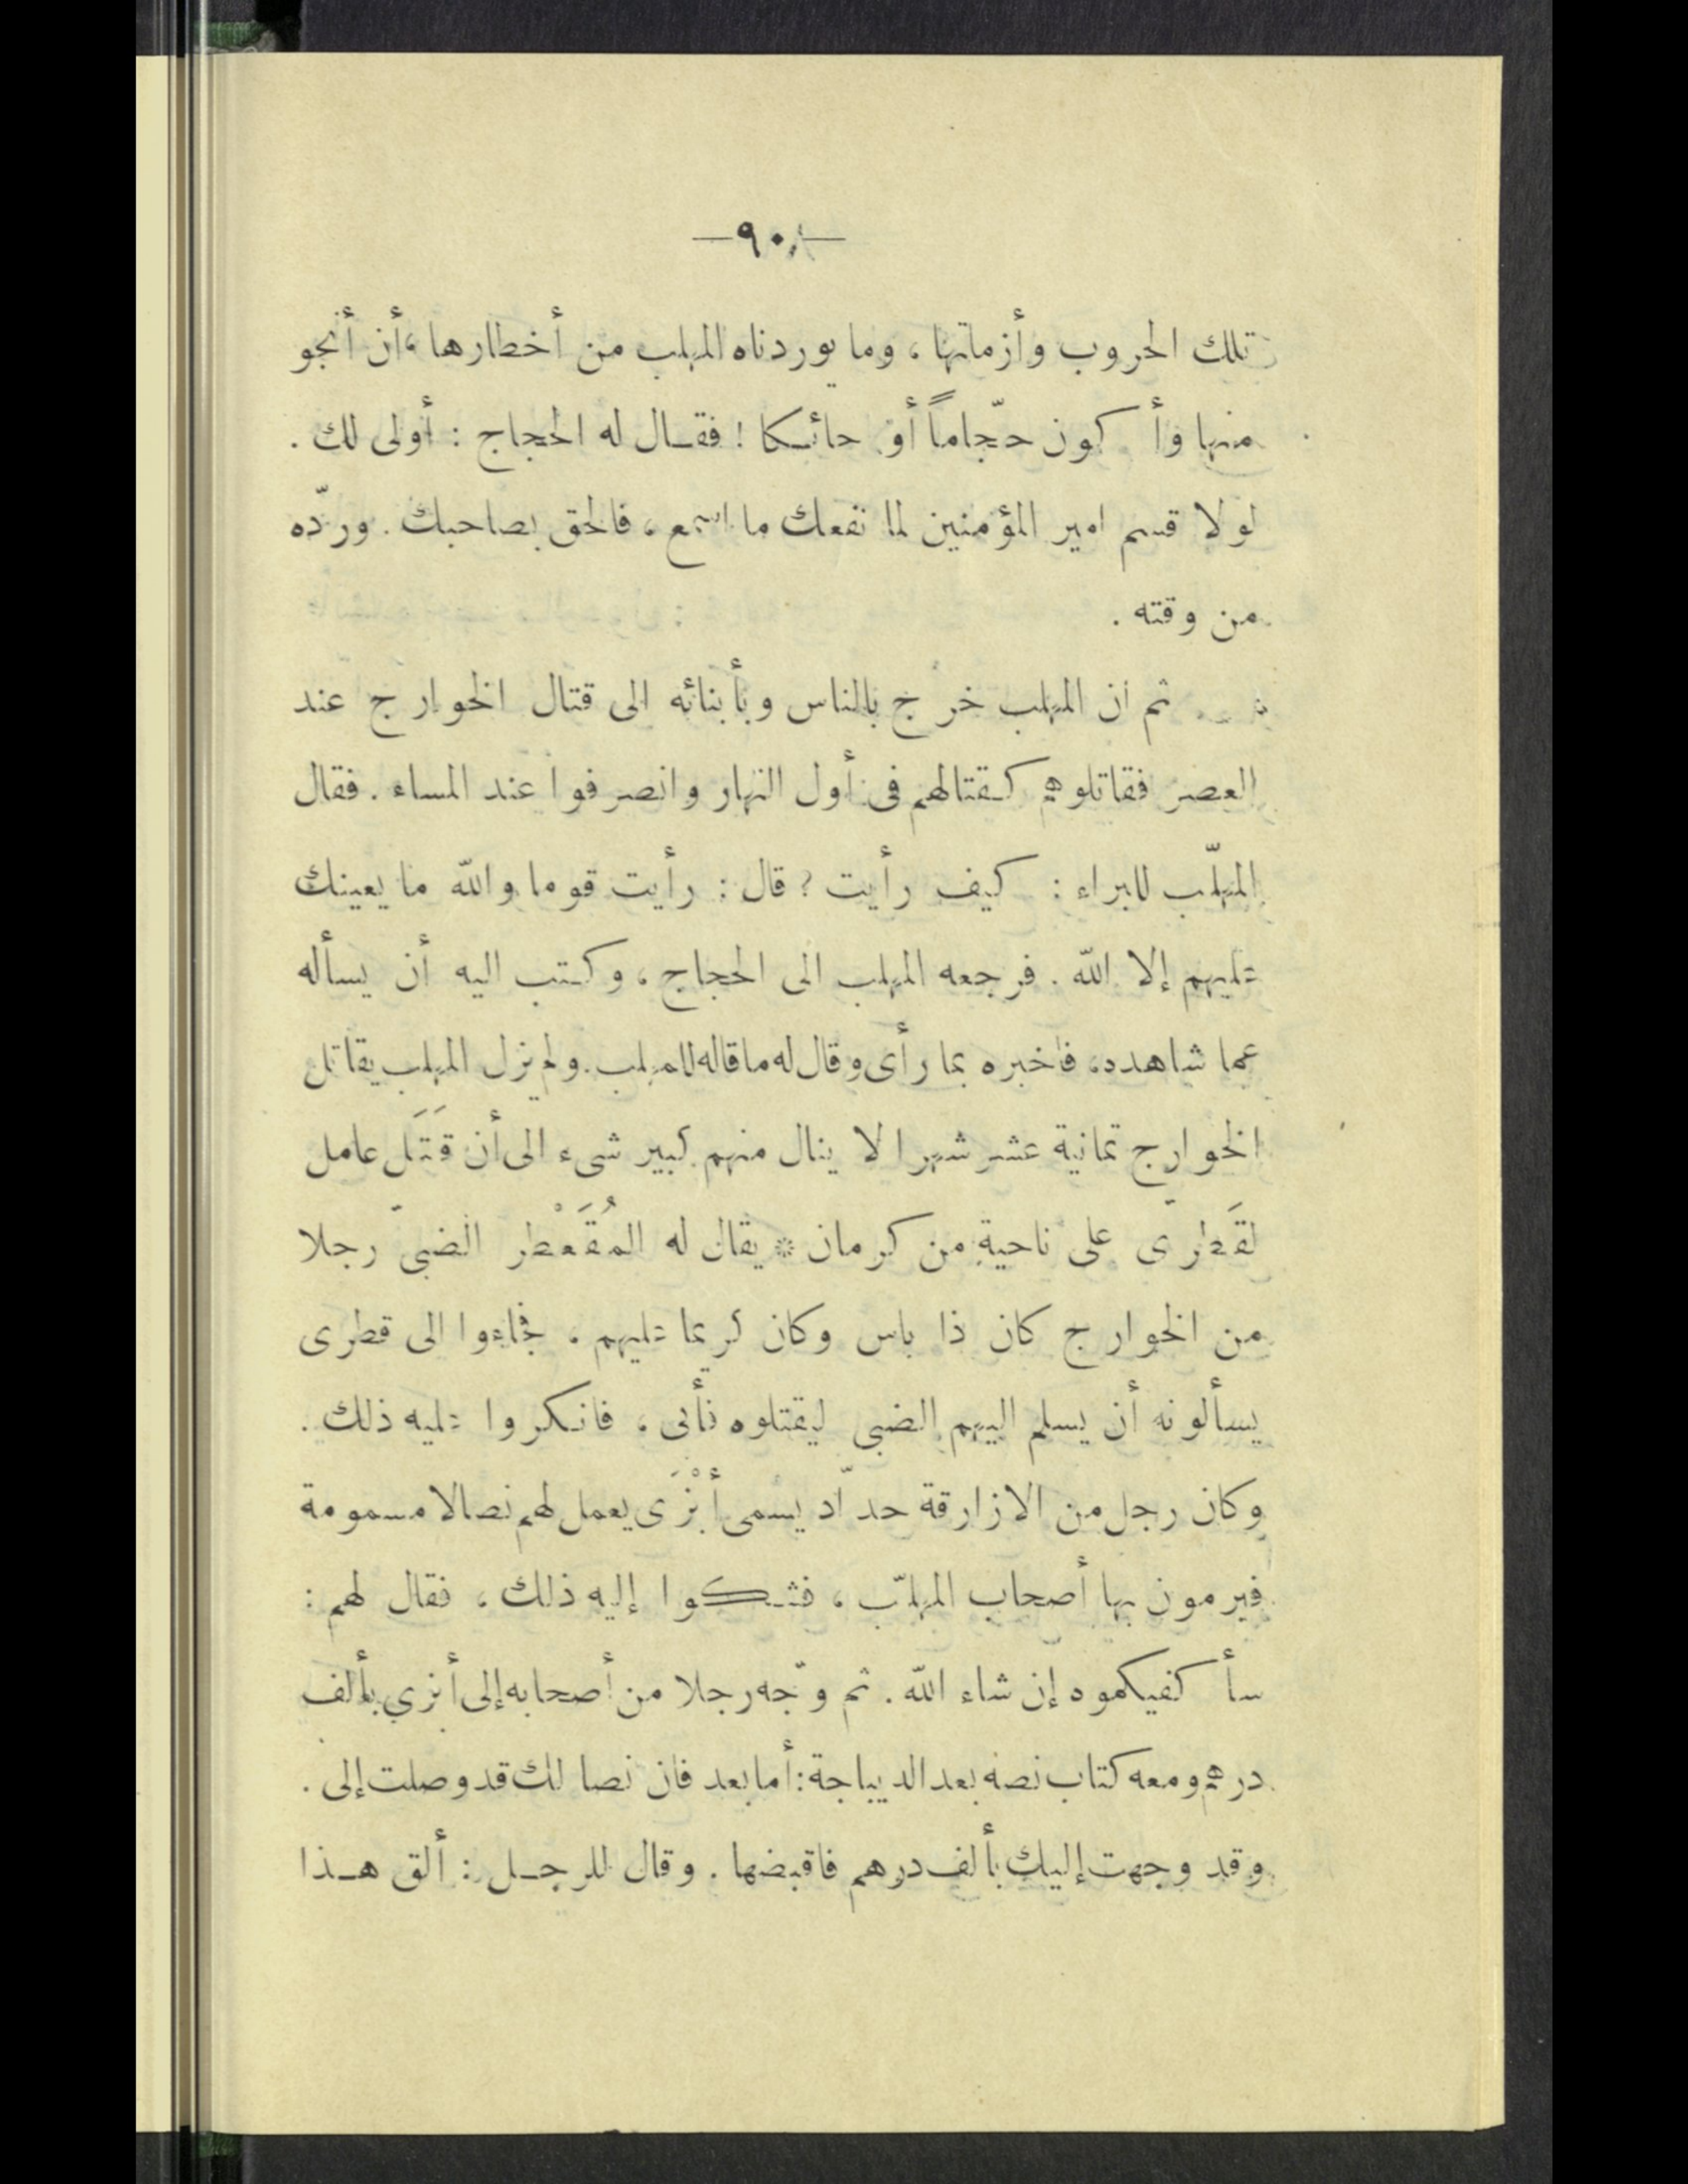 —٩٠—
تلك الحروب وأزماتها ، وما يوردناه المهلب من أخطارها ، أن أنجو
منها وأكون حجّاماً أو حائكا ! فقال له الحجاج : أولى لك .
لولا قسم امير المؤمنين لما نفعك ما اسمع ، فالحق بصاحبك . وردّه
من وقته .
ثم ان المهلب خرج بالناس وبأبنائه الى قتال الخوارج عند
العصر فقاتلوهم كقتالهم فى أول النهار وانصرفوا عند المساء . فقال
المهلّب للبراء : كيف رأيت ؟ قال : رأيت قوما والله ما يعينك
عليهم إلا الله . فرجعه المهلب الى الحجاج ، وكتب اليه أن يسأله
عما شاهده ، فاخبره بما رأى وقال له ما قاله للمهلب . ولم يزل المهلب يقاتل
الخوارج ثمانية عشر شهرا لا ينال منهم كبير شىء الى أن قَتَل عامل
لقَطرىّ على ناحية من كرمان * يقال له المُقَعْطر الضبىّ رجلا
من الخوارج كان ذا باس وكان كريما عليهم ، فجاءوا الى قطرى
يسألونه أن يسلم اليهم الضبى ليقتلوه فأبى ، فانكروا عليه ذلك .
وكان رجل من الازارقة حدّاد يسمى أبْزَى يعمل لهم نصالا مسمومة
فيرمون بها أصحاب المهلّب ، فشكوا إليه ذلك ، فقال لهم :
سأكفيكموه إن شاء الله . ثم وجّه رجلا من أصحابه إلى أبزي بألف
درهم ومعه كتاب نصه بعد الديباجة : أما بعد فان نصالك قد وصلت إلى .
وقد وجهت إليك بألف درهم فاقبضها . وقال للرجل : ألق هذا